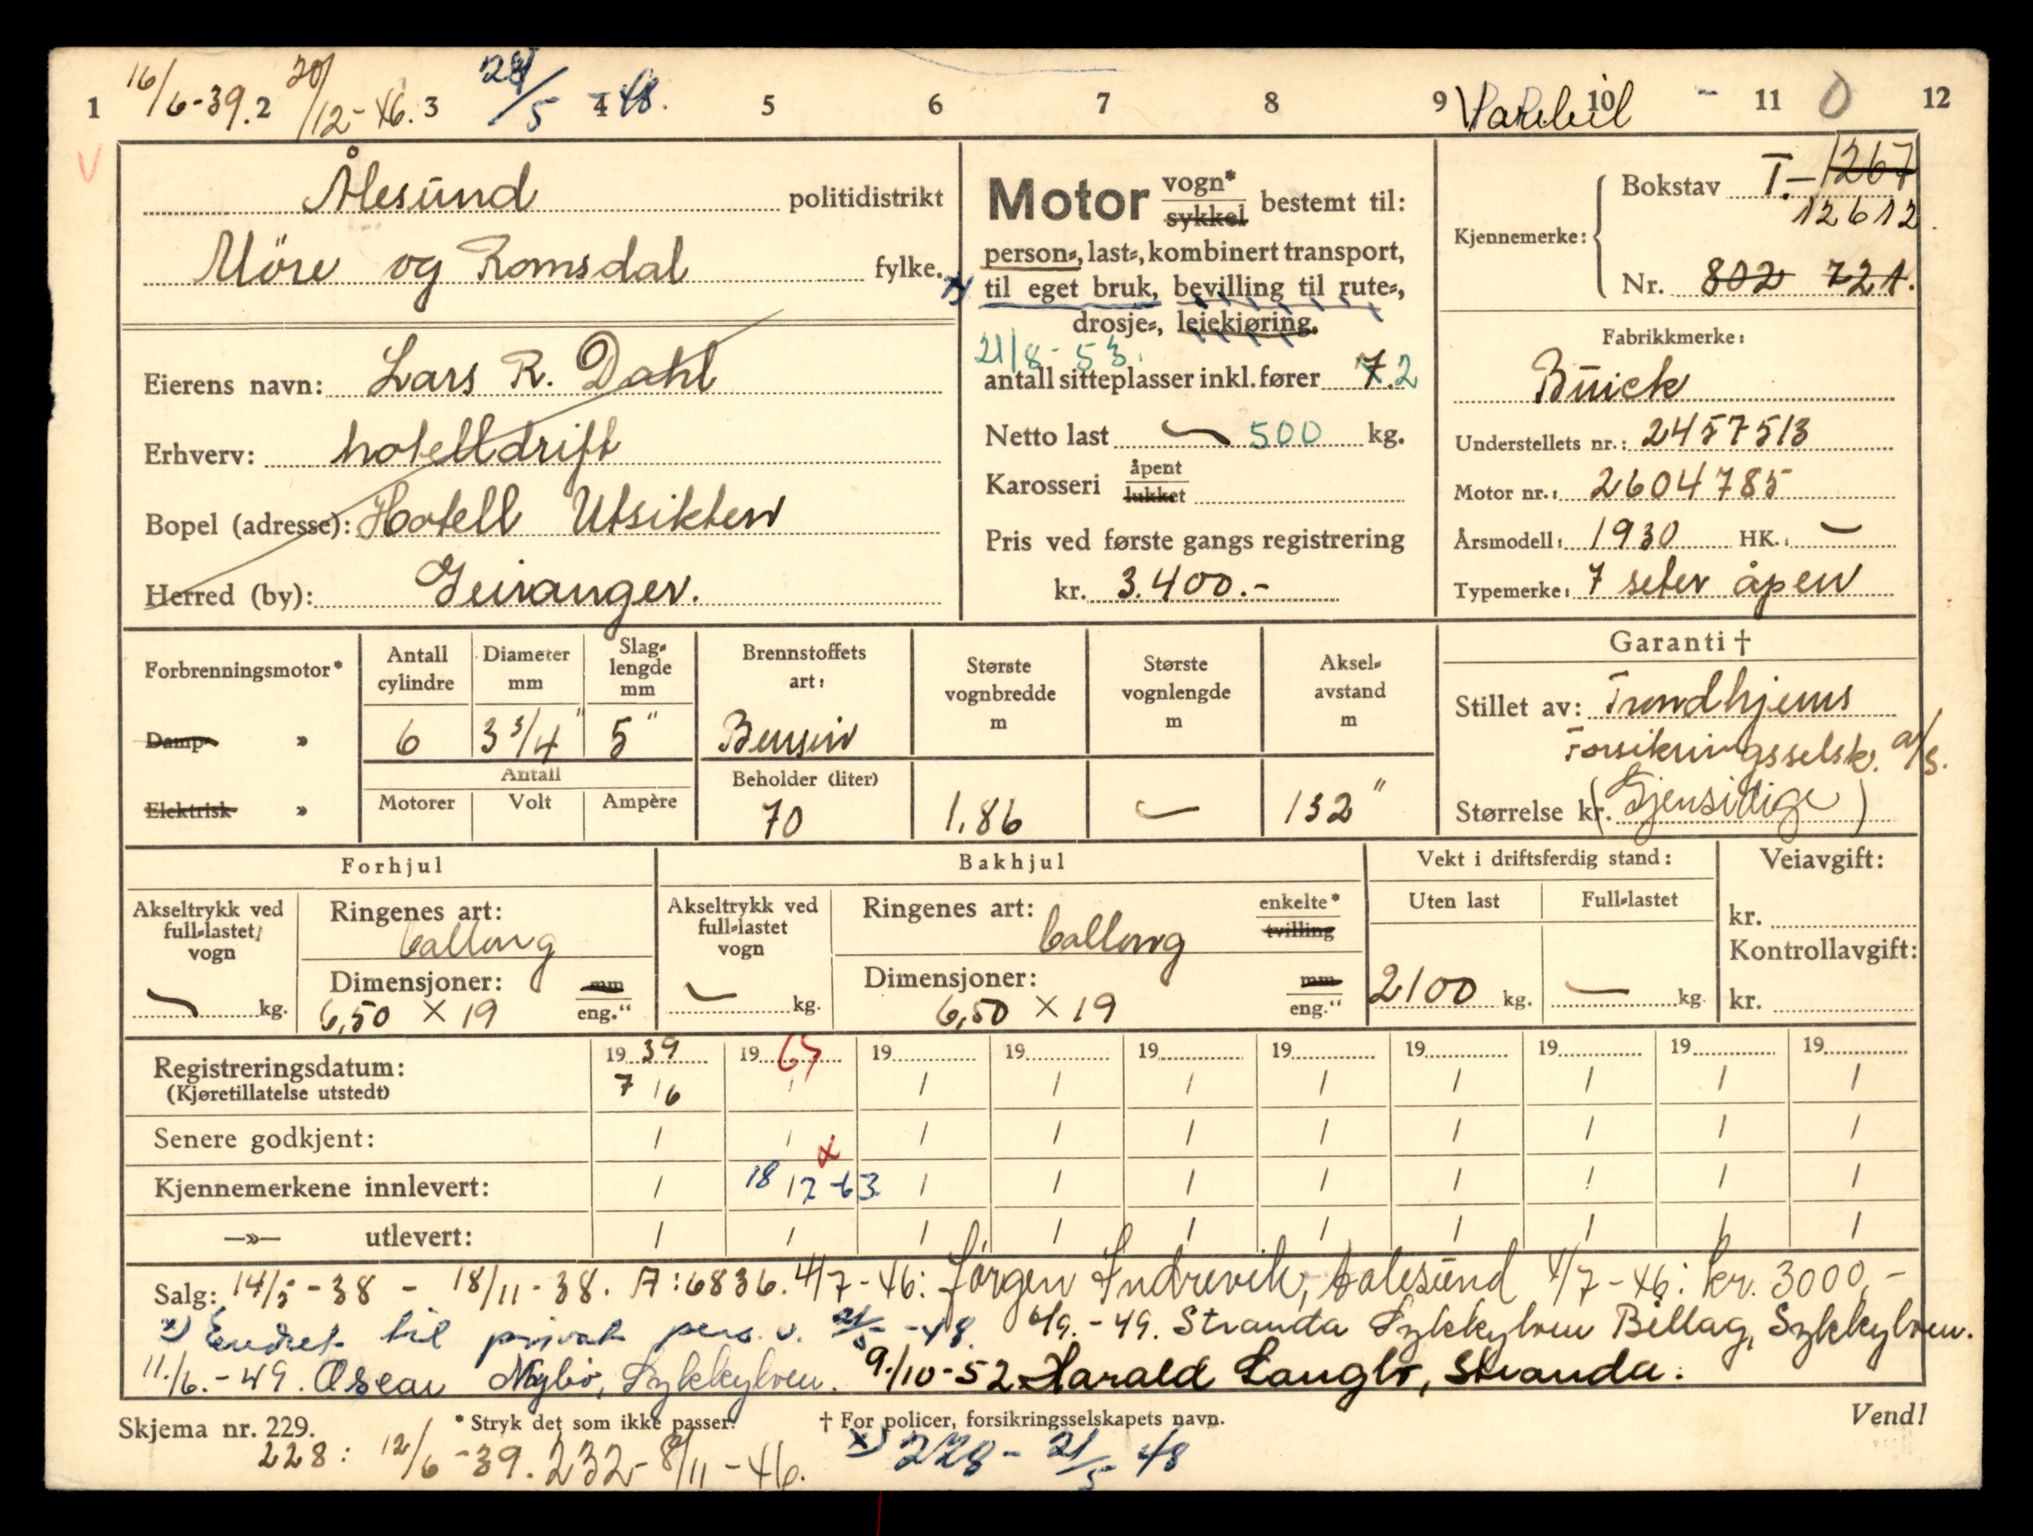 1 16/6-39. 2 20/12-46. 3 28/5 4 -48. 5 6 7 8 9 Varebil 10 - 11 0 12
V
Ålesund politidistrikt
Möre og Romsdal fylke.
Eierens navn: Lars R. Dahl
Erhverv: hotelldrift
Bopel (adresse): Hotell Utsikten
Herred (by): Geiranger.
Motor vogn* sykkel bestemt til:
person-, last-, kombinert transport,
x) til eget bruk, bevilling til rute-,
drosje-, leiekjøring.
21/8-53.
antall sitteplasser inkl. fører 7. 2
Netto last — 500 kg.
Karosseri åpent lukket
Pris ved første gangs registrering
kr. 3.400.-
Kjennemerke: Bokstav T.- 1267
12612.
Nr. 802 721.
Fabrikkmerke:
Buick
Understellets nr.: 2457513
Motor nr.: 2604785
Årsmodell: 1930 HK.: —
Typemerke: 7 seter åpen
Forbrenningsmotor* Antall cylindre Diameter mm Slaglengde mm Brennstoffets art: Største vognbredde m Største vognlengde m Akselavstand m
Damp- » 6 3 3/4" 5" Bensin
Antall
Elektrisk » Motorer Volt Ampère Beholder (liter) 70 1,86 — 132"
Garanti †
Stillet av: Trondhjems
Forsikringsselsk. a/s.
Størrelse kr. (Gjensidige)
Forhjul Bakhjul Vekt i driftsferdig stand: Veiavgift:
Akseltrykk ved full-lastet vogn — kg.
Ringenes art: ballong
Dimensjoner: mm eng."
6,50 × 19
Akseltrykk ved full-lastet vogn — kg.
Ringenes art: ballong enkelte* tvilling
Dimensjoner: mm eng."
6,50 × 19
Uten last Full-lastet
2100 kg. — kg.
kr.
Kontrollavgift:
kr.
Registreringsdatum: 19 39 19 65 19 19 19 19 19 19 19 19
(Kjøretillatelse utstedt) 7/6 / / / / / / / / /
Senere godkjent: / / / / / / / / / /
x
Kjennemerkene innlevert: / 18/7-63 / / / / / / / /
—»— utlevert: / / / / / / / / / /
Salg: 14/5-38 - 18/11-38. A:6836. 4/7-46: Jørgen Indrevik, Aalesund 4/7-46: kr. 3000,-
x) Endret til privat pers. v. 21/5-48. 6/9.-49. Stranda Sykkylven Billag, Sykkylven.
11/6.-49. Oscar Nybø, Sykkylven. 9/10-52 Harald Langlo, Stranda.
Skjema nr. 229. * Stryk det som ikke passer. † For policer, forsikringsselskapets navn. Vend!
228: 12/6-39. 232-8/11-46. x) 228-21/5 48